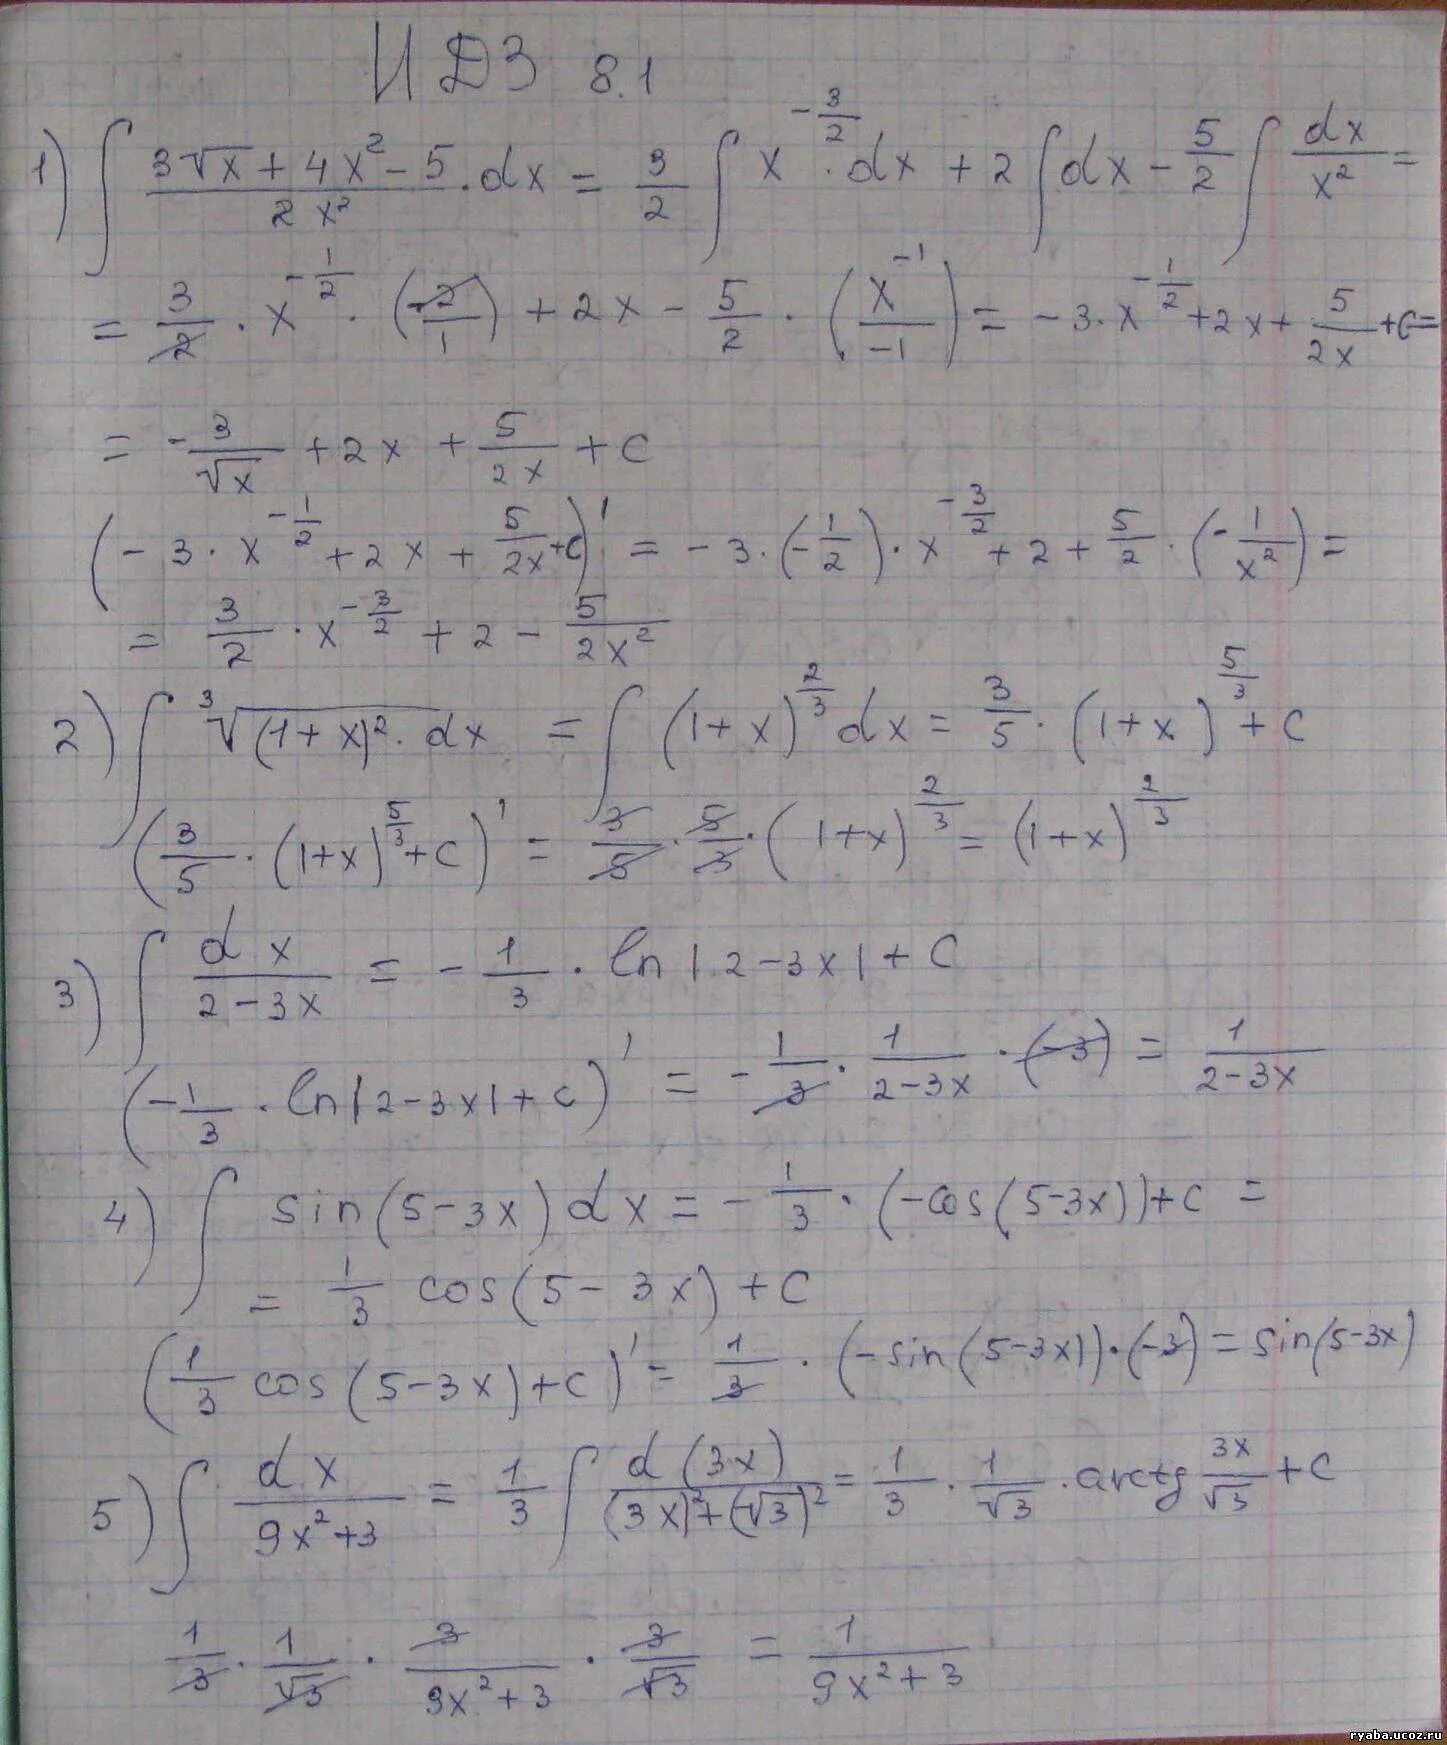 ИДЗ 8.1
1) ∫ (3√x + 4x² - 5)/(2x²) · dx = 3/2 ∫ x^(-3/2) · dx + 2 ∫ dx - 5/2 ∫ dx/x² =
= 3/2 · x^(-1/2) · (-2/1) + 2x - 5/2 · (x^(-1)/(-1)) = -3 · x^(-1/2) + 2x + 5/(2x) + C =
= -3/√x + 2x + 5/(2x) + C
(-3 · x^(-1/2) + 2x + 5/(2x) + C)' = -3 · (-1/2) · x^(-3/2) + 2 + 5/2 · (-1/x²) =
= 3/2 · x^(-3/2) + 2 - 5/(2x²)
2) ∫ ∛((1+x)²) · dx = ∫ (1+x)^(2/3) dx = 3/5 · (1+x)^(5/3) + C
(3/5 · (1+x)^(5/3) + C)' = 3/5 · 5/3 · (1+x)^(2/3) = (1+x)^(2/3)
3) ∫ dx/(2-3x) = -1/3 · ln|2-3x| + C
(-1/3 · ln|2-3x| + C)' = -1/3 · 1/(2-3x) · (-3) = 1/(2-3x)
4) ∫ sin(5-3x) dx = -1/3 · (-cos(5-3x)) + C =
= 1/3 cos(5-3x) + C
(1/3 cos(5-3x) + C)' = 1/3 · (-sin(5-3x)) · (-3) = sin(5-3x)
5) ∫ dx/(9x²+3) = 1/3 ∫ d(3x)/((3x)²+(√3)²) = 1/3 · 1/√3 · arctg 3x/√3 + C
1/3 · 1/√3 · 3/(9x²+3) · 3/√3 = 1/(9x²+3)
ryaba.ucoz.ru